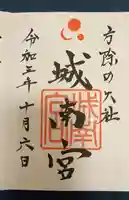 方除の大社
城南宮
令和三年十月六日
城南宮